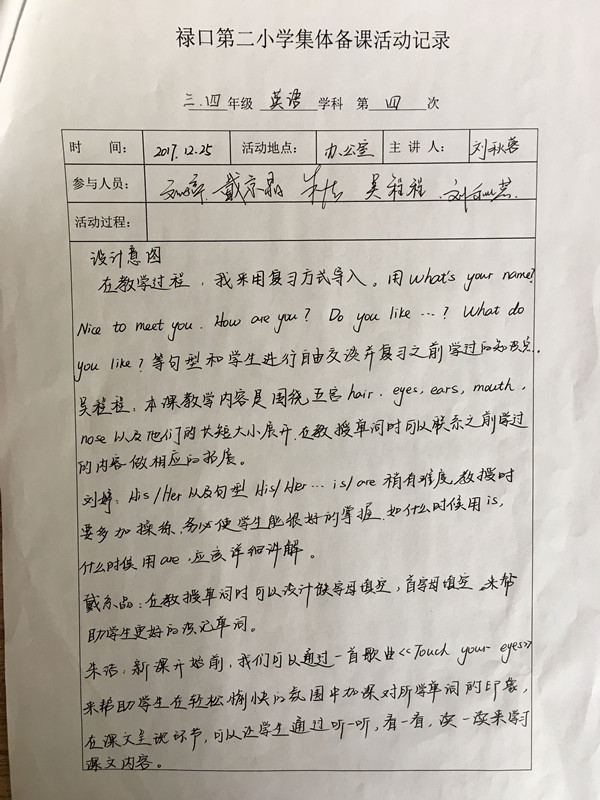 禄口第二小学集体备课活动记录
三.四年级 英语 学科 第 四 次
时 间: 2017.12.25 活动地点: 办公室 主 讲 人: 刘秋蓉
参与人员: 戴京晶 朱洁 吴程程
活动过程:
设计意图
在教学过程,我采用复习方式导入。用What's your name?
Nice to meet you. How are you? Do you like …? What do
you like?等句型和学生进行自由交谈并复习之前学过的知识点.
吴程程:本课教学内容是围绕五官hair.eyes,ears,mouth,
nose以及他们的长短大小展开.在教授单词时可以联系之前学过
的内容做相应的拓展。
刘婷:His/Her以及句型His/Her… is/are稍有难度,教授时
要多加操练,务必使学生能很好的掌握.如什么时候用is,
什么时候用are,应该详细讲解。
戴京晶:在教授单词时可以设计缺字母填空,首字母填空,来帮
助学生更好的读记单词。
朱洁:新课开始前,我们可以通过一首歌曲<<Touch your eyes>>
来帮助学生在轻松愉快的氛围中加深对所学单词的印象,
在课文呈现环节,可以让学生通过听一听,看一看,读一读来学习
课文内容。